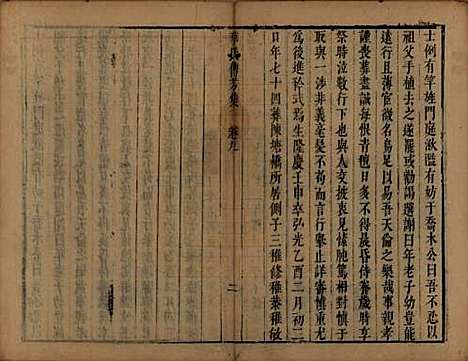 士例有竿旌門庭湫隘有妨于喬木公曰吾不忍以
祖父手植去之遂罷或勸謁選謝曰年老子幼豈能
遠行且薄宦微名烏足以易吾天倫之樂哉事親孝
謹喪葬盡誠每恨青氊日多不得晨昏侍養歲時享
祭時泣數行下與人交披衷見愫胞篤相對慎于
取與一涉非義毫髮不苟而言行擧止詳審慎重尤
爲後進矜式焉生隆慶壬申卒弘光乙酉二月初三
日年七十四葬陳塘橋所居側子三稚修稚葉稚敏
華氏傳芳集 卷九
二